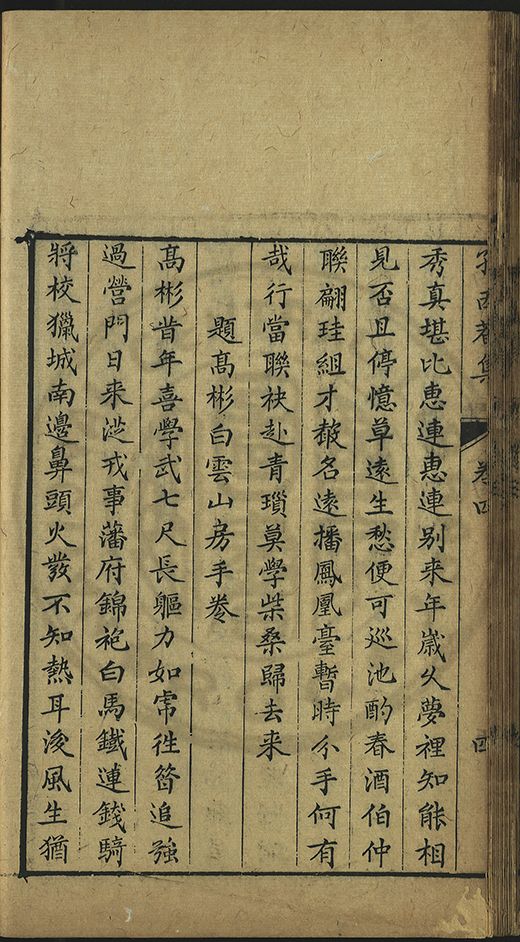 孫西菴集 卷四 四
秀真堪比惠連惠連别来年歲久夢裡知能相
見否且停憶草遠生愁便可巡池酌春酒伯仲
聯翩珪組才馥名遠播鳳凰臺暫時分手何有
哉行當聯袂赴青瑣莫學柴桑歸去来
題高彬白雲山房手卷
高彬昔年喜學武七尺長軀力如常徃箚追強
過營門日来從戎事藩府錦袍白馬鐵連錢騎
將校獵城南邊鼻頭火發不知熱耳後風生猶